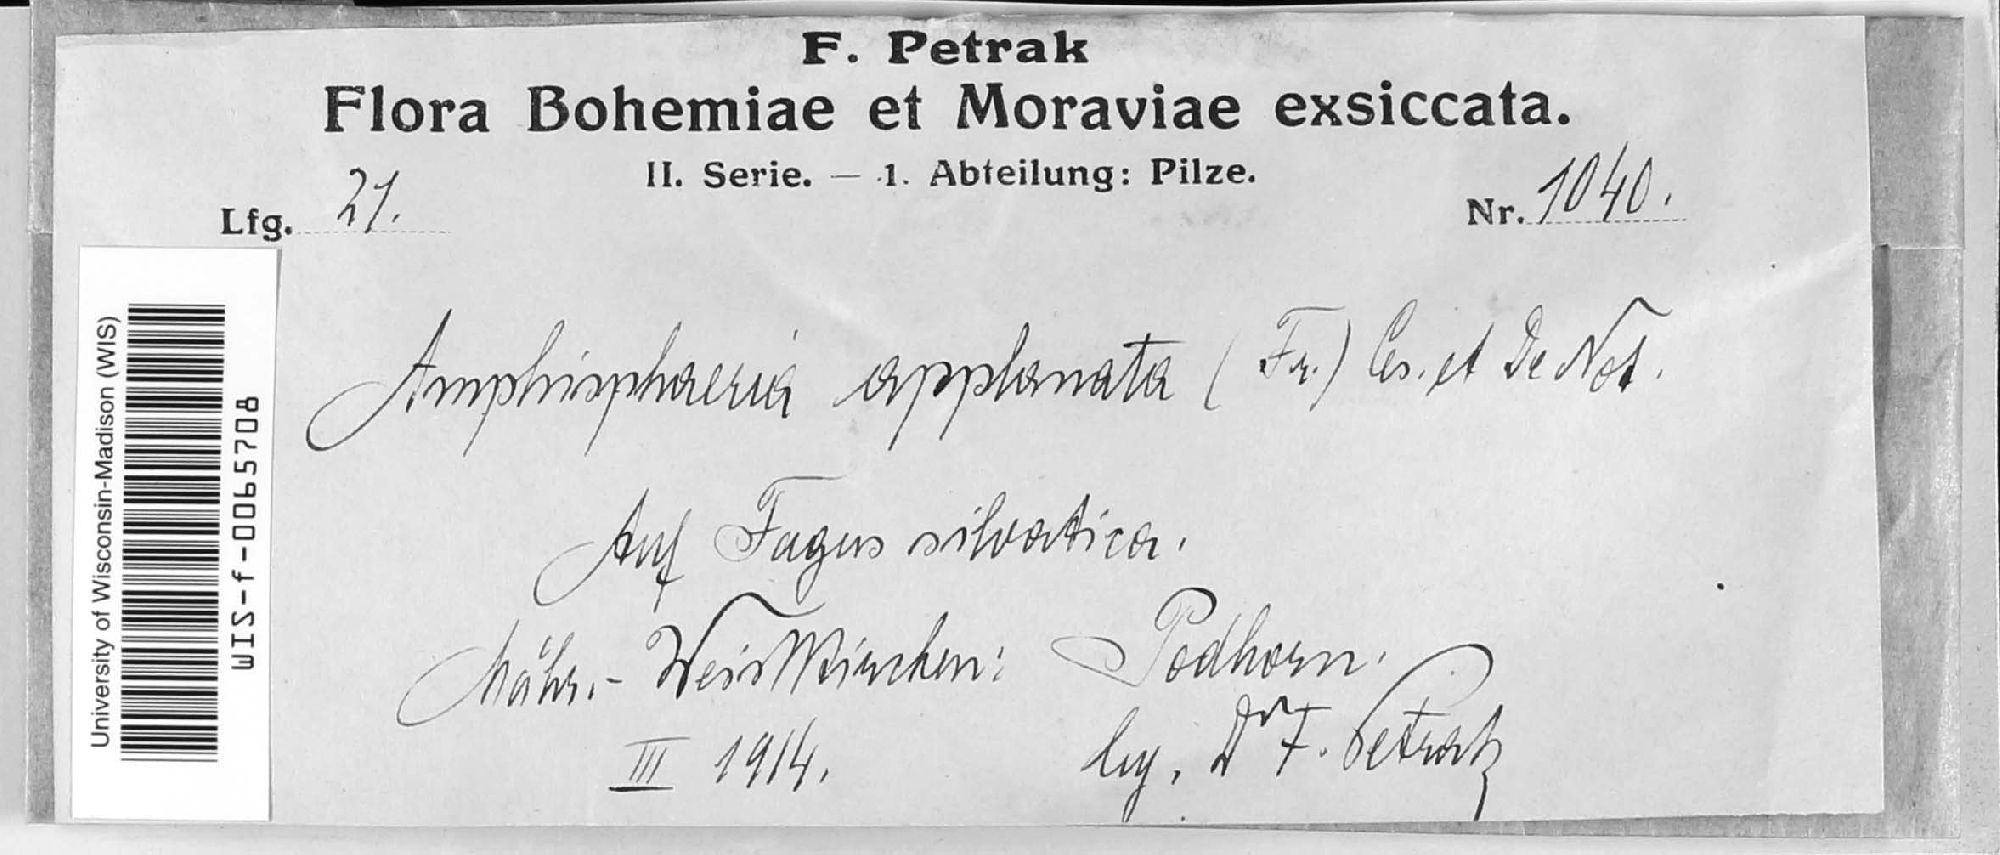 F. Petrak
Flora Bohemiae et Moraviae exsiccata.
II. Serie. — 1. Abteilung: Pilze.
Lfg. 21. Nr. 1040.
Amphisphaeria applanata (Fr.) Ces. et De Not.
Auf Fagus silvatica.
Mähr.- Weisskirchen: Podhorn.
III 1914. leg. Dr F. Petrak
University of Wisconsin-Madison (WIS)
WIS-f-0065708